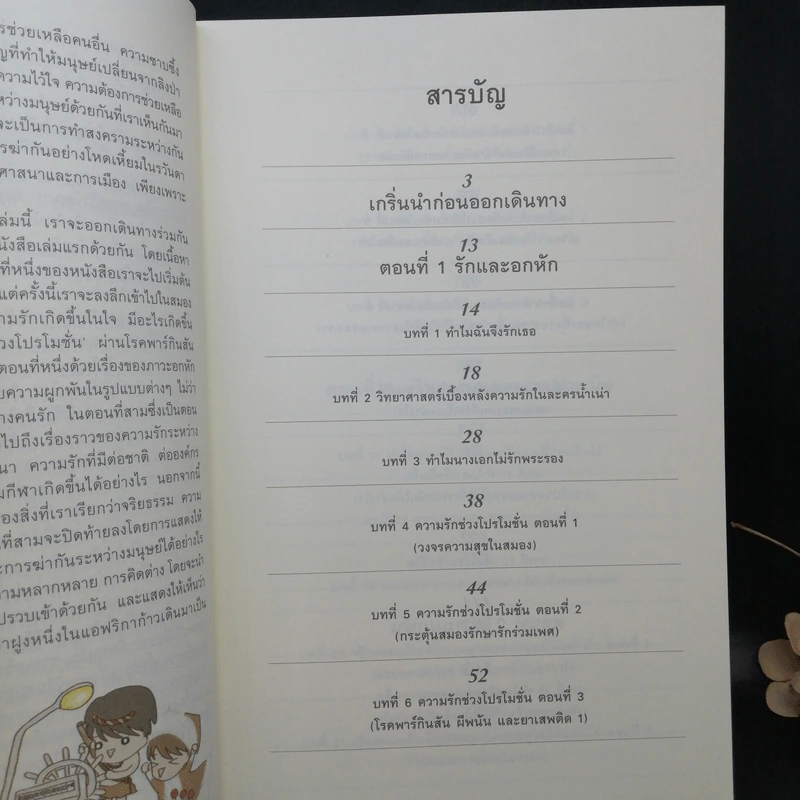 ารช่วยเหลือคนอื่น ความซาบซึ้ง
ญที่ทำให้มนุษย์เปลี่ยนจากลิงป่า
ความไว้ใจ ความต้องการช่วยเหลือ
หว่างมนุษย์ด้วยกันที่เราเห็นกันมา
ะเป็นการทำสงครามระหว่างกัน
รฆ่ากันอย่างโหดเหี้ยมในรวันดา
ศาสนาและการเมือง เพียงเพราะ
ล่มนี้ เราจะออกเดินทางร่วมกัน
นังสือเล่มแรกด้วยกัน โดยเนื้อหา
ที่หนึ่งของหนังสือเราจะไปเริ่มต้น
แต่ครั้งนี้เราจะลงลึกเข้าไปในสมอง
ามรักเกิดขึ้นในใจ มีอะไรเกิดขึ้น
ช่วงโปรโมชั่น' ผ่านโรคพาร์กินสัน
ตอนที่หนึ่งด้วยเรื่องของภาวะอกหัก
บความผูกพันในรูปแบบต่างๆ ไม่ว่า
างคนรัก ในตอนที่สามซึ่งเป็นตอน
ไปถึงเรื่องราวของความรักระหว่าง
นา ความรักที่มีต่อชาติ ต่อองค์กร
มกีฬาเกิดขึ้นได้อย่างไร นอกจากนี้
องสิ่งที่เราเรียกว่าจริยธรรม ความ
นที่สามจะปิดท้ายลงโดยการแสดงให้
ะการฆ่ากันระหว่างมนุษย์ได้อย่างไร
ามหลากหลาย การคิดต่าง โดยจะนำ
ปรวบเข้าด้วยกัน และแสดงให้เห็นว่า
าฝูงหนึ่งในแอฟริกาก้าวเดินมาเป็น
สารบัญ
3
เกริ่นนำก่อนออกเดินทาง
13
ตอนที่ 1 รักและอกหัก
14
บทที่ 1 ทำไมฉันจึงรักเธอ
18
บทที่ 2 วิทยาศาสตร์เบื้องหลังความรักในละครน้ำเน่า
28
บทที่ 3 ทำไมนางเอกไม่รักพระรอง
38
บทที่ 4 ความรักช่วงโปรโมชั่น ตอนที่ 1
(วงจรความสุขในสมอง)
44
บทที่ 5 ความรักช่วงโปรโมชั่น ตอนที่ 2
(กระตุ้นสมองรักษารักร่วมเพศ)
52
บทที่ 6 ความรักช่วงโปรโมชั่น ตอนที่ 3
(โรคพาร์กินสัน ผีพนัน และยาเสพติด 1)